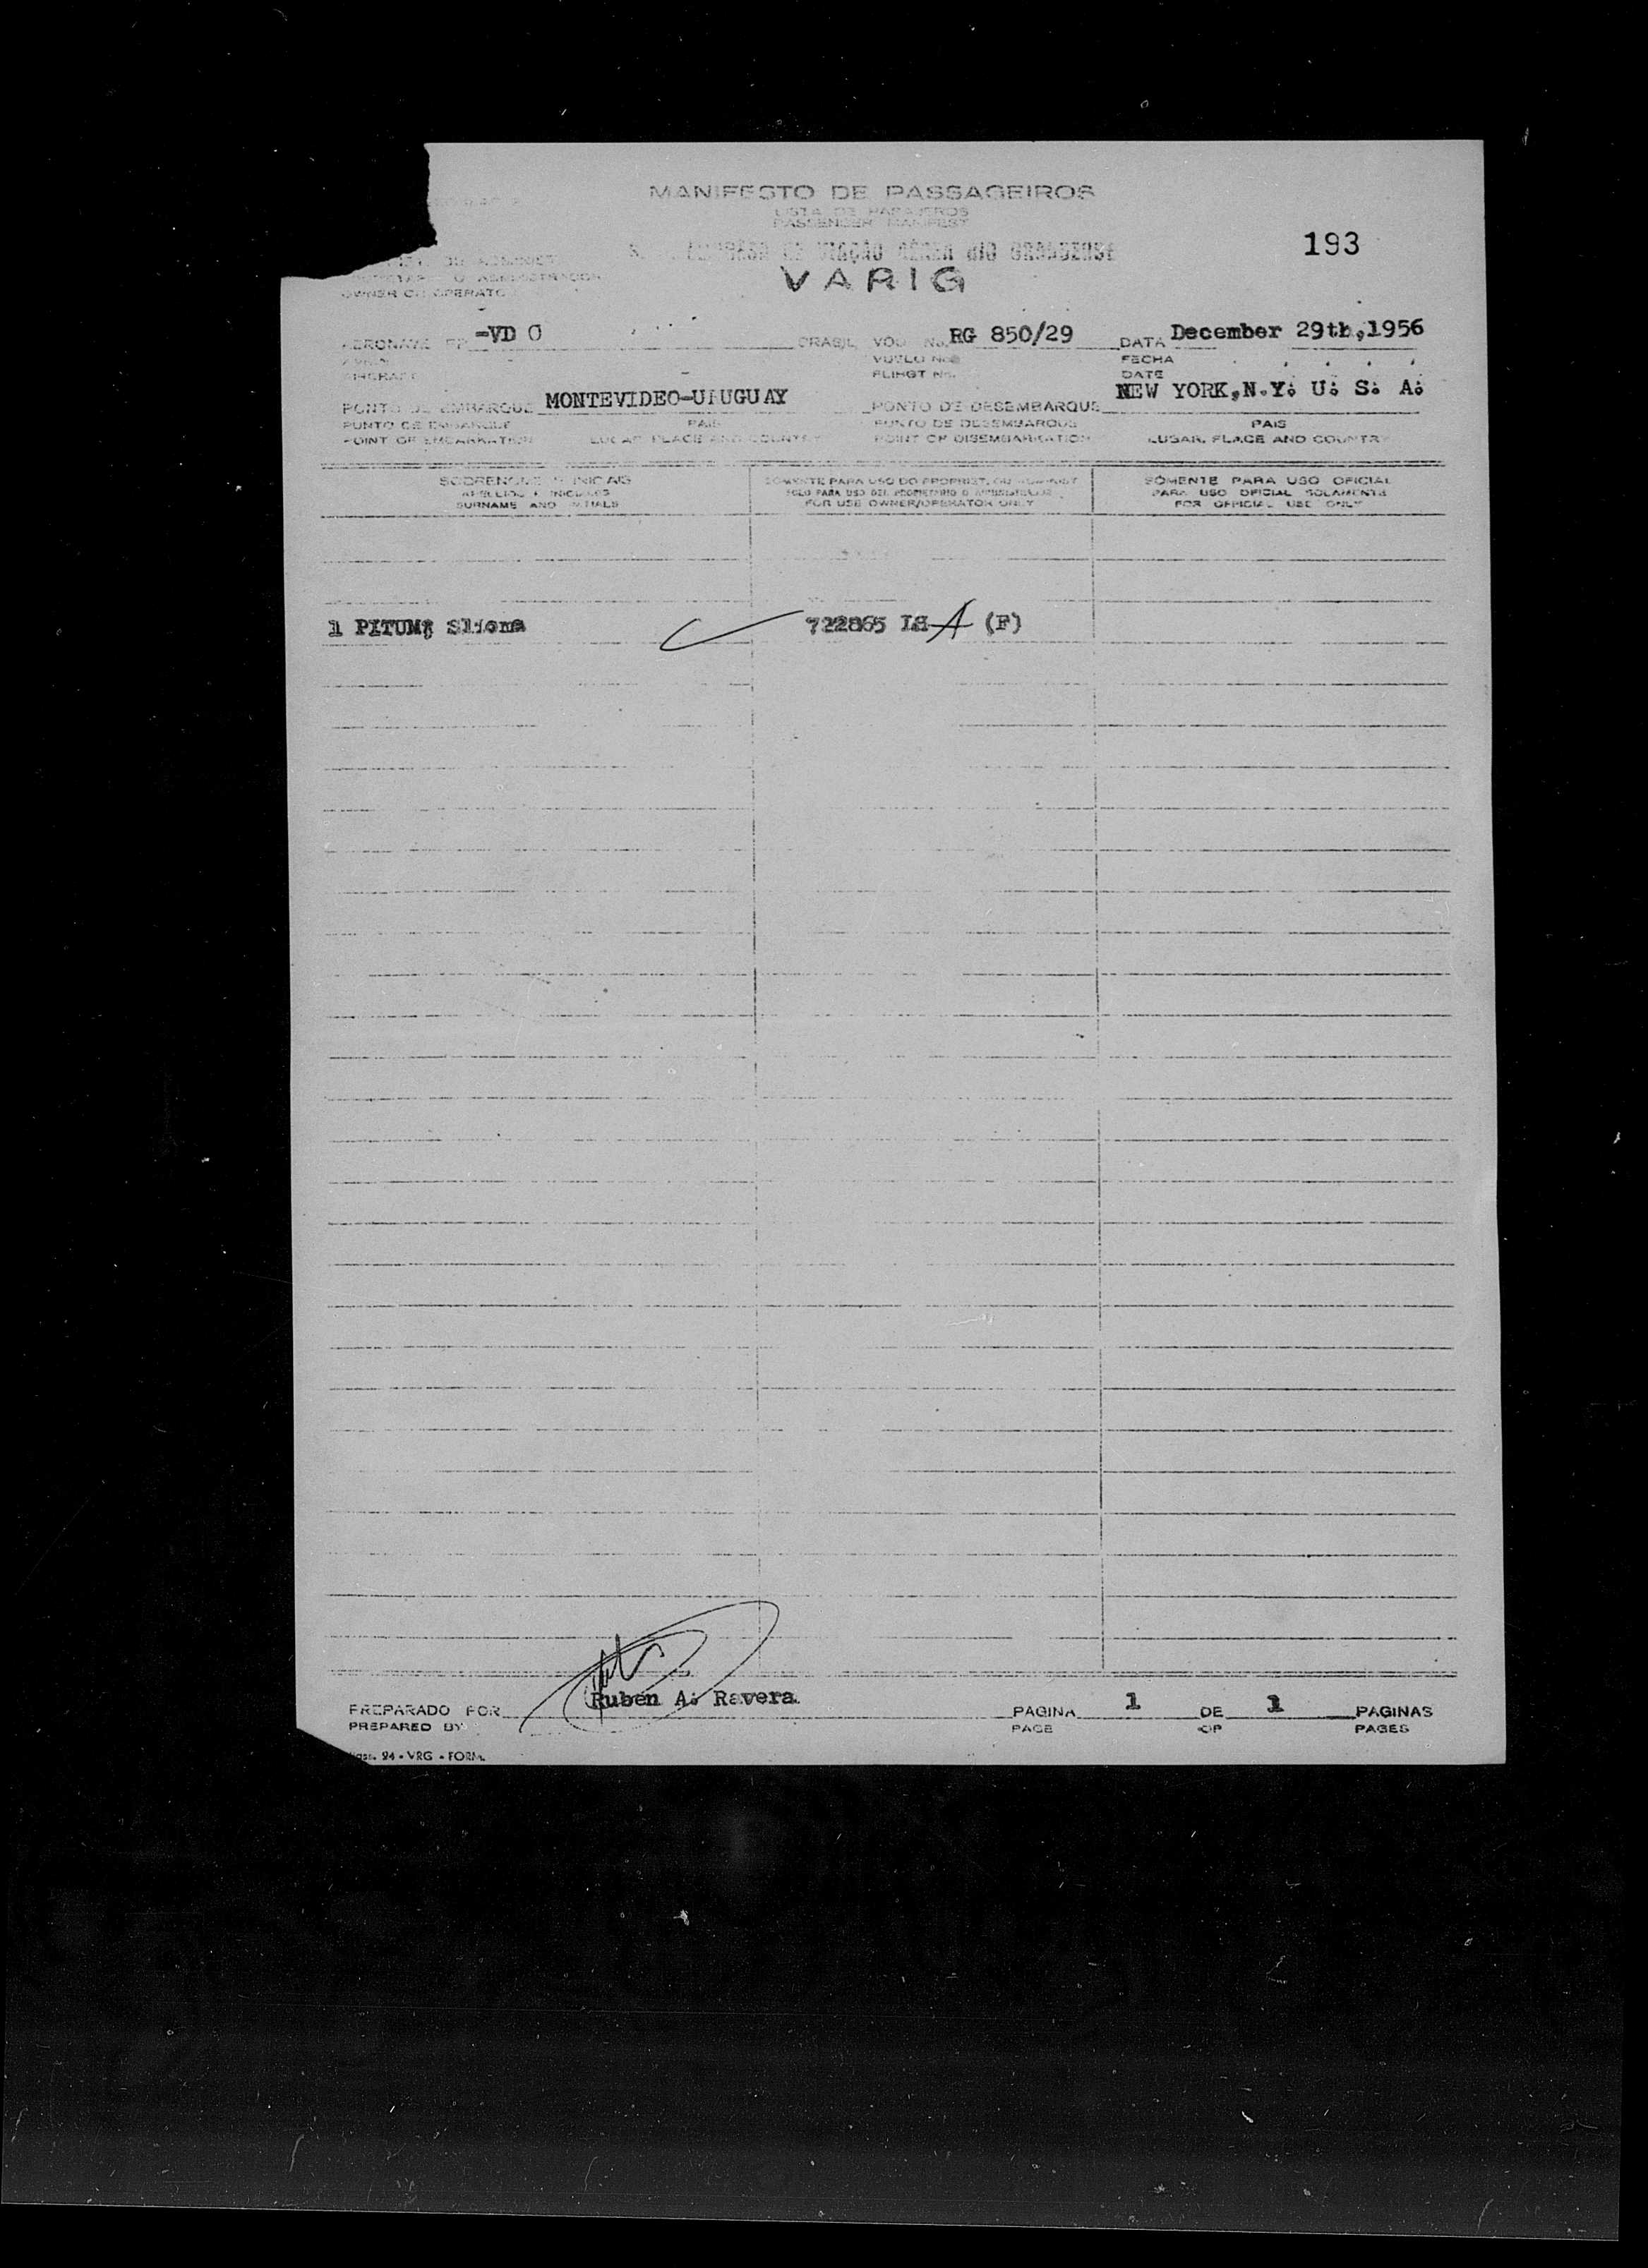 MANIFESTO DE PASSAGEIROS
LISTA DE PASAJEROS
PASSENGER MANIFEST
193
VIAÇÃO AÉREA RIO GRANDENSE
VARIG
OWNER OR OPERATOR
AERONAVE PP -VD O BRASIL VOO No. RG 850/29 DATA December 29th,1956
VUELO No. FECHA
AIRCRAFT FLIHGT No. DATE
PONTO DE EMBARQUE MONTEVIDEO-URUGUAY PONTO DE DESEMBARQUE NEW YORK,N.Y: U: S: A:
PUNTO DE EMBARQUE PAIS PUNTO DE DESEMBARQUE PAIS
POINT OF EMBARKATION LUGAR, PLACE AND COUNTRY POINT OF DISEMBARKATION LUGAR, PLACE AND COUNTRY
SOBRENOME E INICIAIS SOMENTE PARA USO DO PROPRIET. OU SOMENTE PARA USO OFICIAL
SOLO PARA USO DEL PROPIETARIO O PARA USO OFICIAL SOLAMENTE
SURNAME AND INITIALS FOR USE OWNER/OPERATOR ONLY FOR OFFICIAL USE ONLY
1 PITUM; 722865 A (F)
PREPARADO POR Ruben A: Ravera PAGINA 1 DE 1 PAGINAS
PREPARED BY PAGE OF PAGES
94 - VRG - FORM.